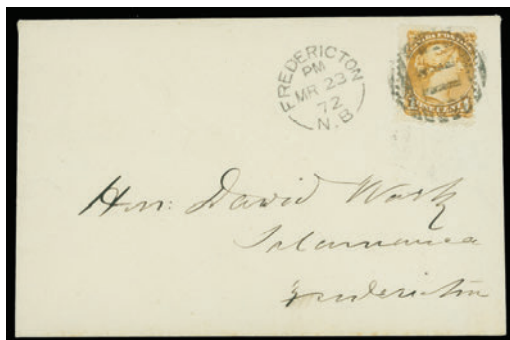 FREDERICTON
PM
MR 23
72
N.B
Hon: David Wark
Salamanca
Fredericton